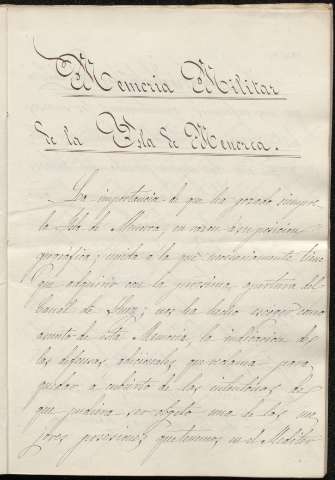 Memoria Militar
de la Isla de Menorca.
La importancia de que ha gozado siempre
la Isla de Menorca, en razon á su posicion
geográfica; unida a la que necesariamente tiene
que adquirir con la proxima apertura del
Canal de Suez; nos ha hecho escoger como
asunto de esta Memoria, la indicacion de
las defensas adicionales que reclama para
quedar a cubierto de las intentonas de
que pudiera ser objeto una de las me
jores posesiones que tenemos en el Mediter